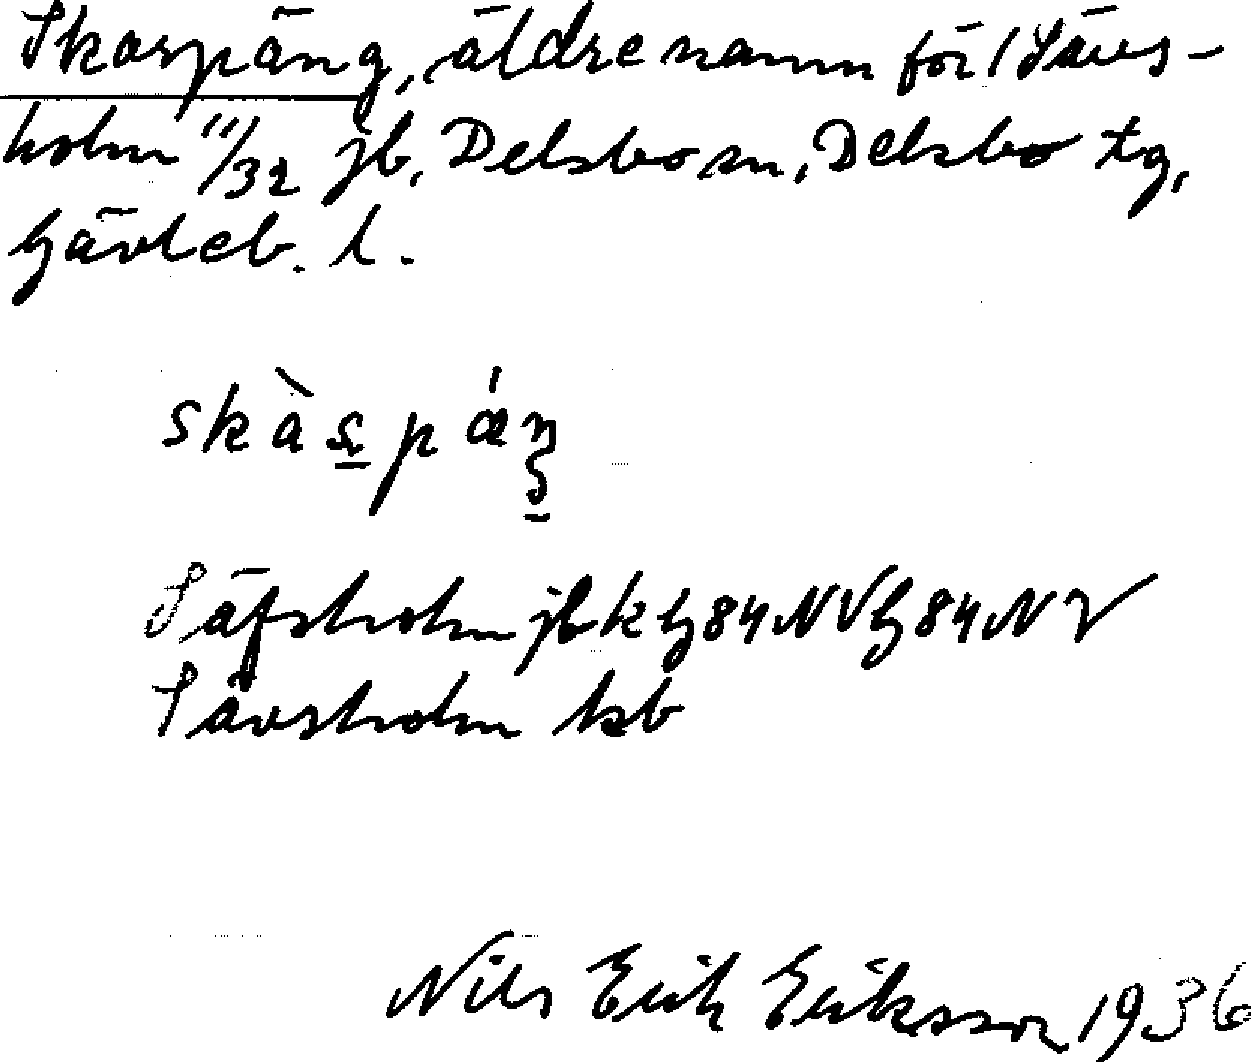 Skarpäng, äldre namn för 1 Sävs-
holm 11/32 jb, Delsbo sn, Delsbo tg,
Gävleb. l.
skàs̲pǽŋ
Säfsholm jb k G84NV G84NV
Sävsholm kb
Nils Erik Eriksson 1936